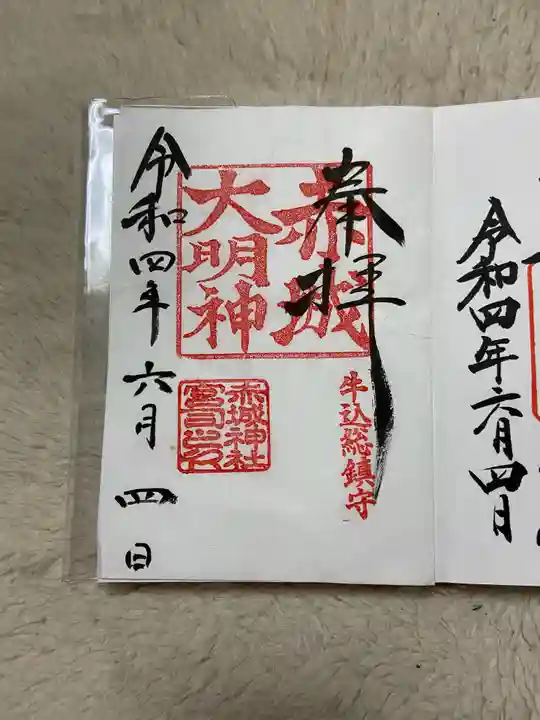 令和四年六月四日
奉拝
牛込総鎮守
赤城
大明神
赤城神社
宮司之印
令和四年六月四日